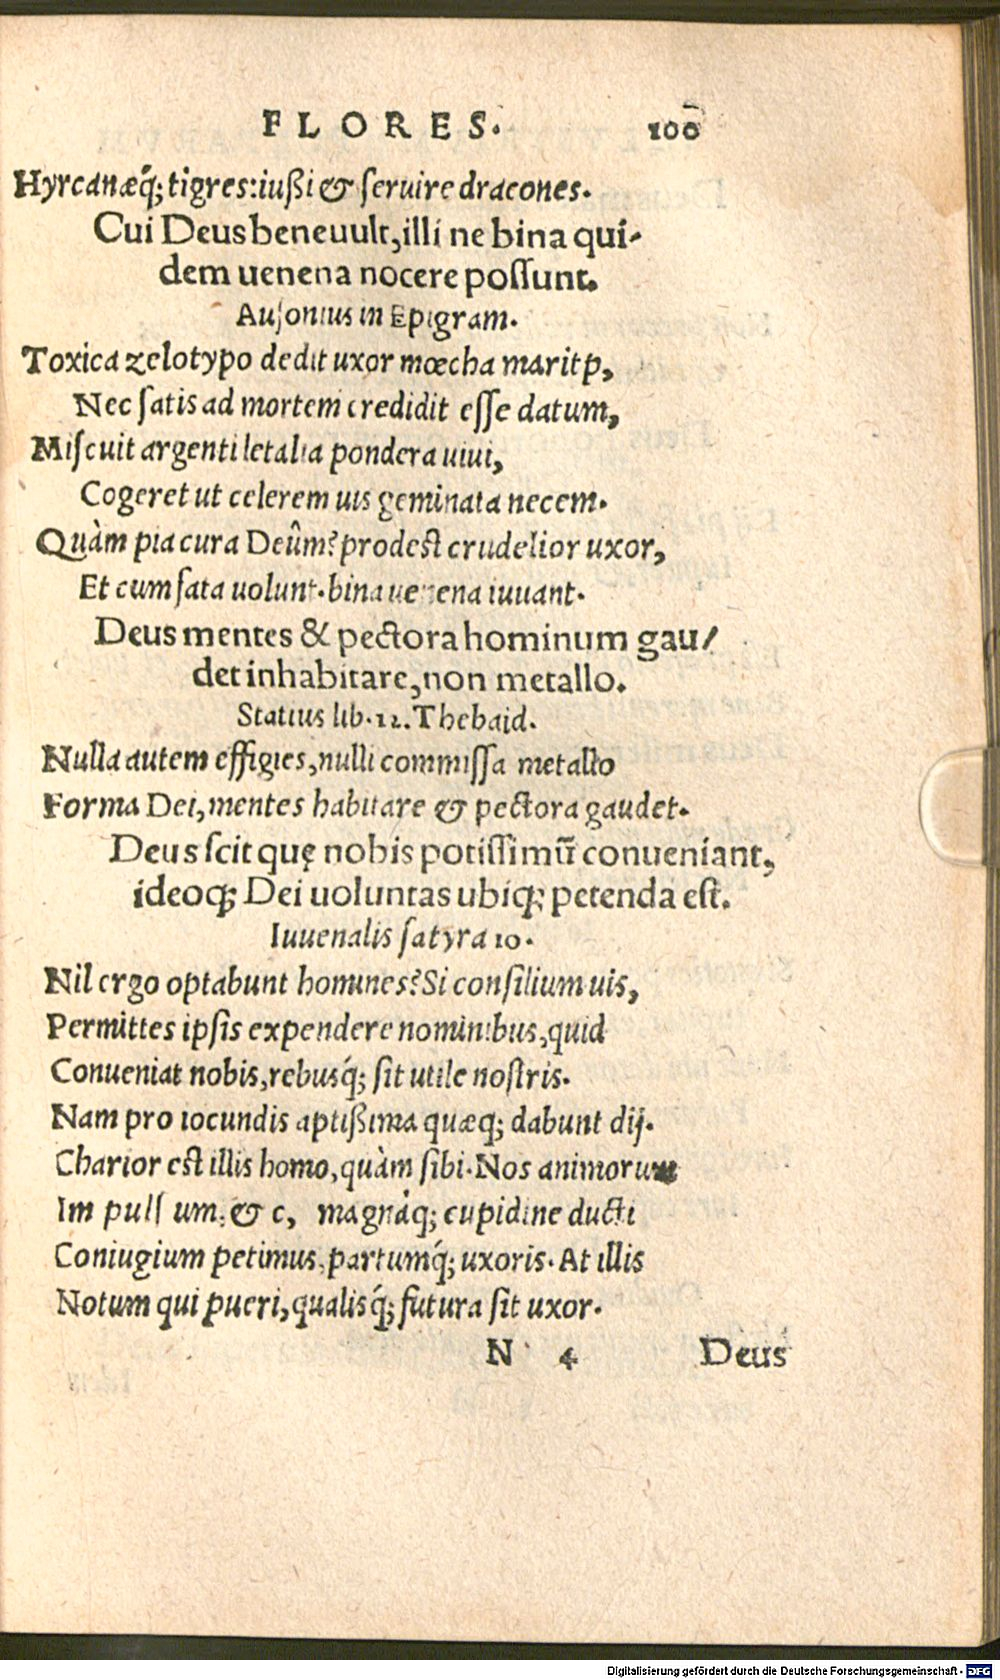 FLORES. 100
Hyrcanæq́; tigres: iußi & ſeruire dracones.
Cui Deus bene uult, illi ne bina qui-
dem uenena nocere poſſunt.
Auſonius in Epigram.
Toxica zelotypo dedit uxor mœcha marito,
Nec ſatis ad mortem credidit eſſe datum,
Miſcuit argenti letalia pondera uiui,
Cogeret ut celerem uis geminata necem.
Quàm pia cura Deûm? prodeſt crudelior uxor,
Et cum fata uolunt. bina uenena iuuant.
Deus mentes & pectora hominum gau/
det inhabitare, non metallo.
Statius lib. 12. Thebaid.
Nulla autem effigies, nulli commiſſa metallo
Forma Dei, mentes habitare & pectora gaudet.
Deus ſcit quę nobis potiſſimū conueniant,
ideoq; Dei uoluntas ubiq; petenda eſt.
Iuuenalis ſatyra 10.
Nil ergo optabunt homines? Si conſilium uis,
Permittes ipſis expendere nominibus, quid
Conueniat nobis, rebusq́; ſit utile noſtris.
Nam pro iocundis aptißima quæq; dabunt dij.
Charior eſt illis homo, quàm ſibi. Nos animorum
Im pulſ um, & c, magnáq; cupidine ducti
Coniugium petimus, partumq́; uxoris. At illis
Notum qui pueri, qualisq́; futura ſit uxor.
N 4 Deus
Digitalisierung gefördert durch die Deutsche Forschungsgemeinschaft - DFG